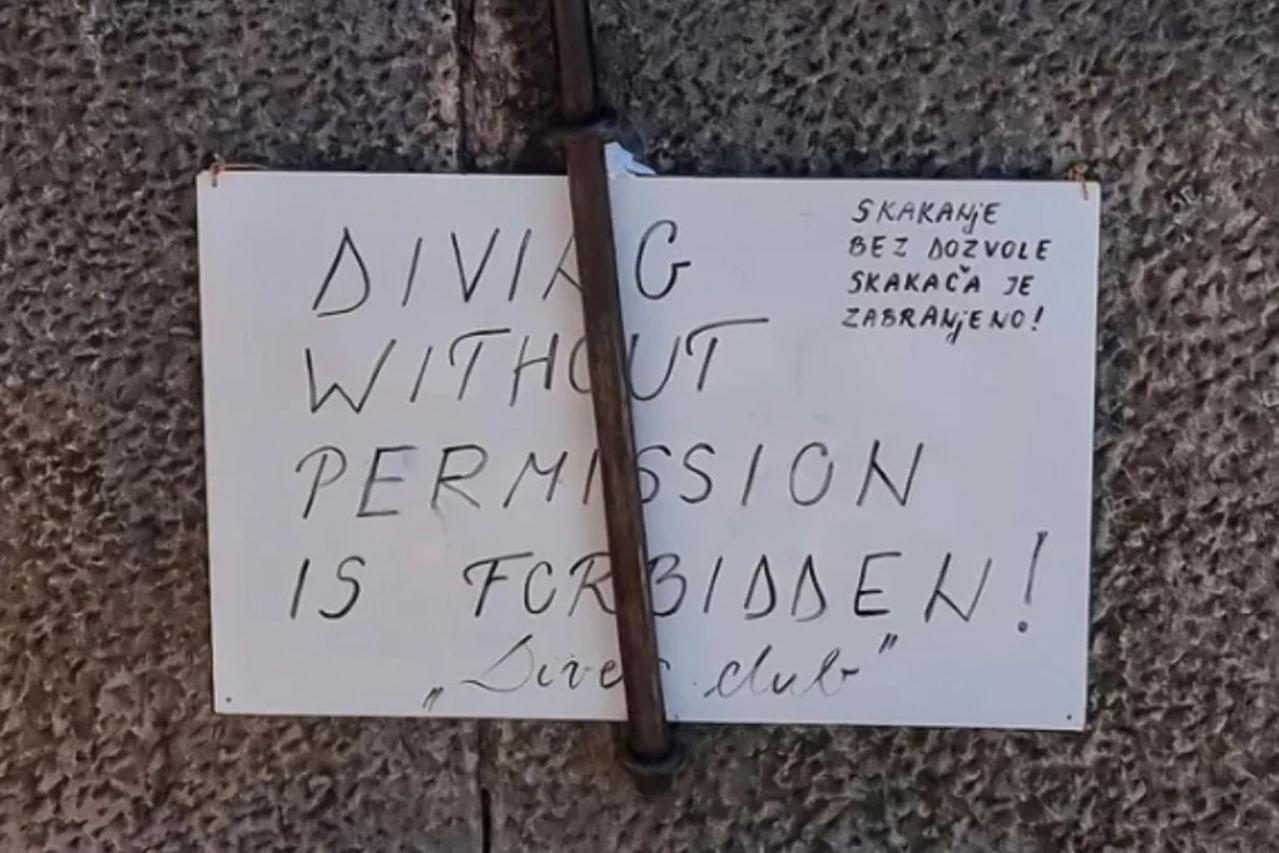 DIVING
WITHOUT
PERMISSION
IS FORBIDDEN!
„Divers club”
SKAKANjE
BEZ DOZVOLE
SKAKAČA JE
ZABRANjENO!